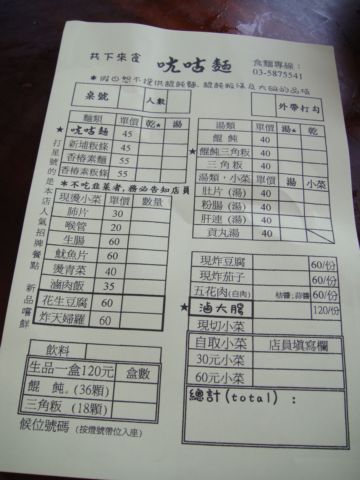 共下來食 咣咕麵 食麵專線：
03-5875541
＊假日恕不提供餛飩麵、餛飩粄條及大碗的品項
桌號 人數 外帶打勾
麵類 單價 乾★ 湯
★咣咕麵 45
新埔粄條 45
香椿素麵 55
香椿素粄條 55
＊不吃韭菜者,務必告知店員
現燙小菜 單價 數量
肺片 30
喉管 20
生腸 60
魷魚片 60
燙青菜 40
滷肉飯 35
花生豆腐 60
炸天婦羅 60
打星號的是本店人氣招牌餐點 新品嚐鮮
飲料
生品一盒120元 盒數
餛飩。(36顆)
三角粄 (18顆)
候位號碼 (按燈號帶位入座)
湯類 單價
餛飩 40
★餛飩三角粄 40
三角粄 40
湯類,小菜 單價 湯 小菜
肚片(湯) 40
粉腸(湯) 40
肝連(湯) 40
貢丸湯 40
現炸豆腐 60/份
現炸茄子 60/份
五花肉(白肉) 桔醬;蒜醬 60/份
★滷大腸 120/份
現切小菜
自取小菜 店員填寫欄
30元小菜
60元小菜
總計(total)：